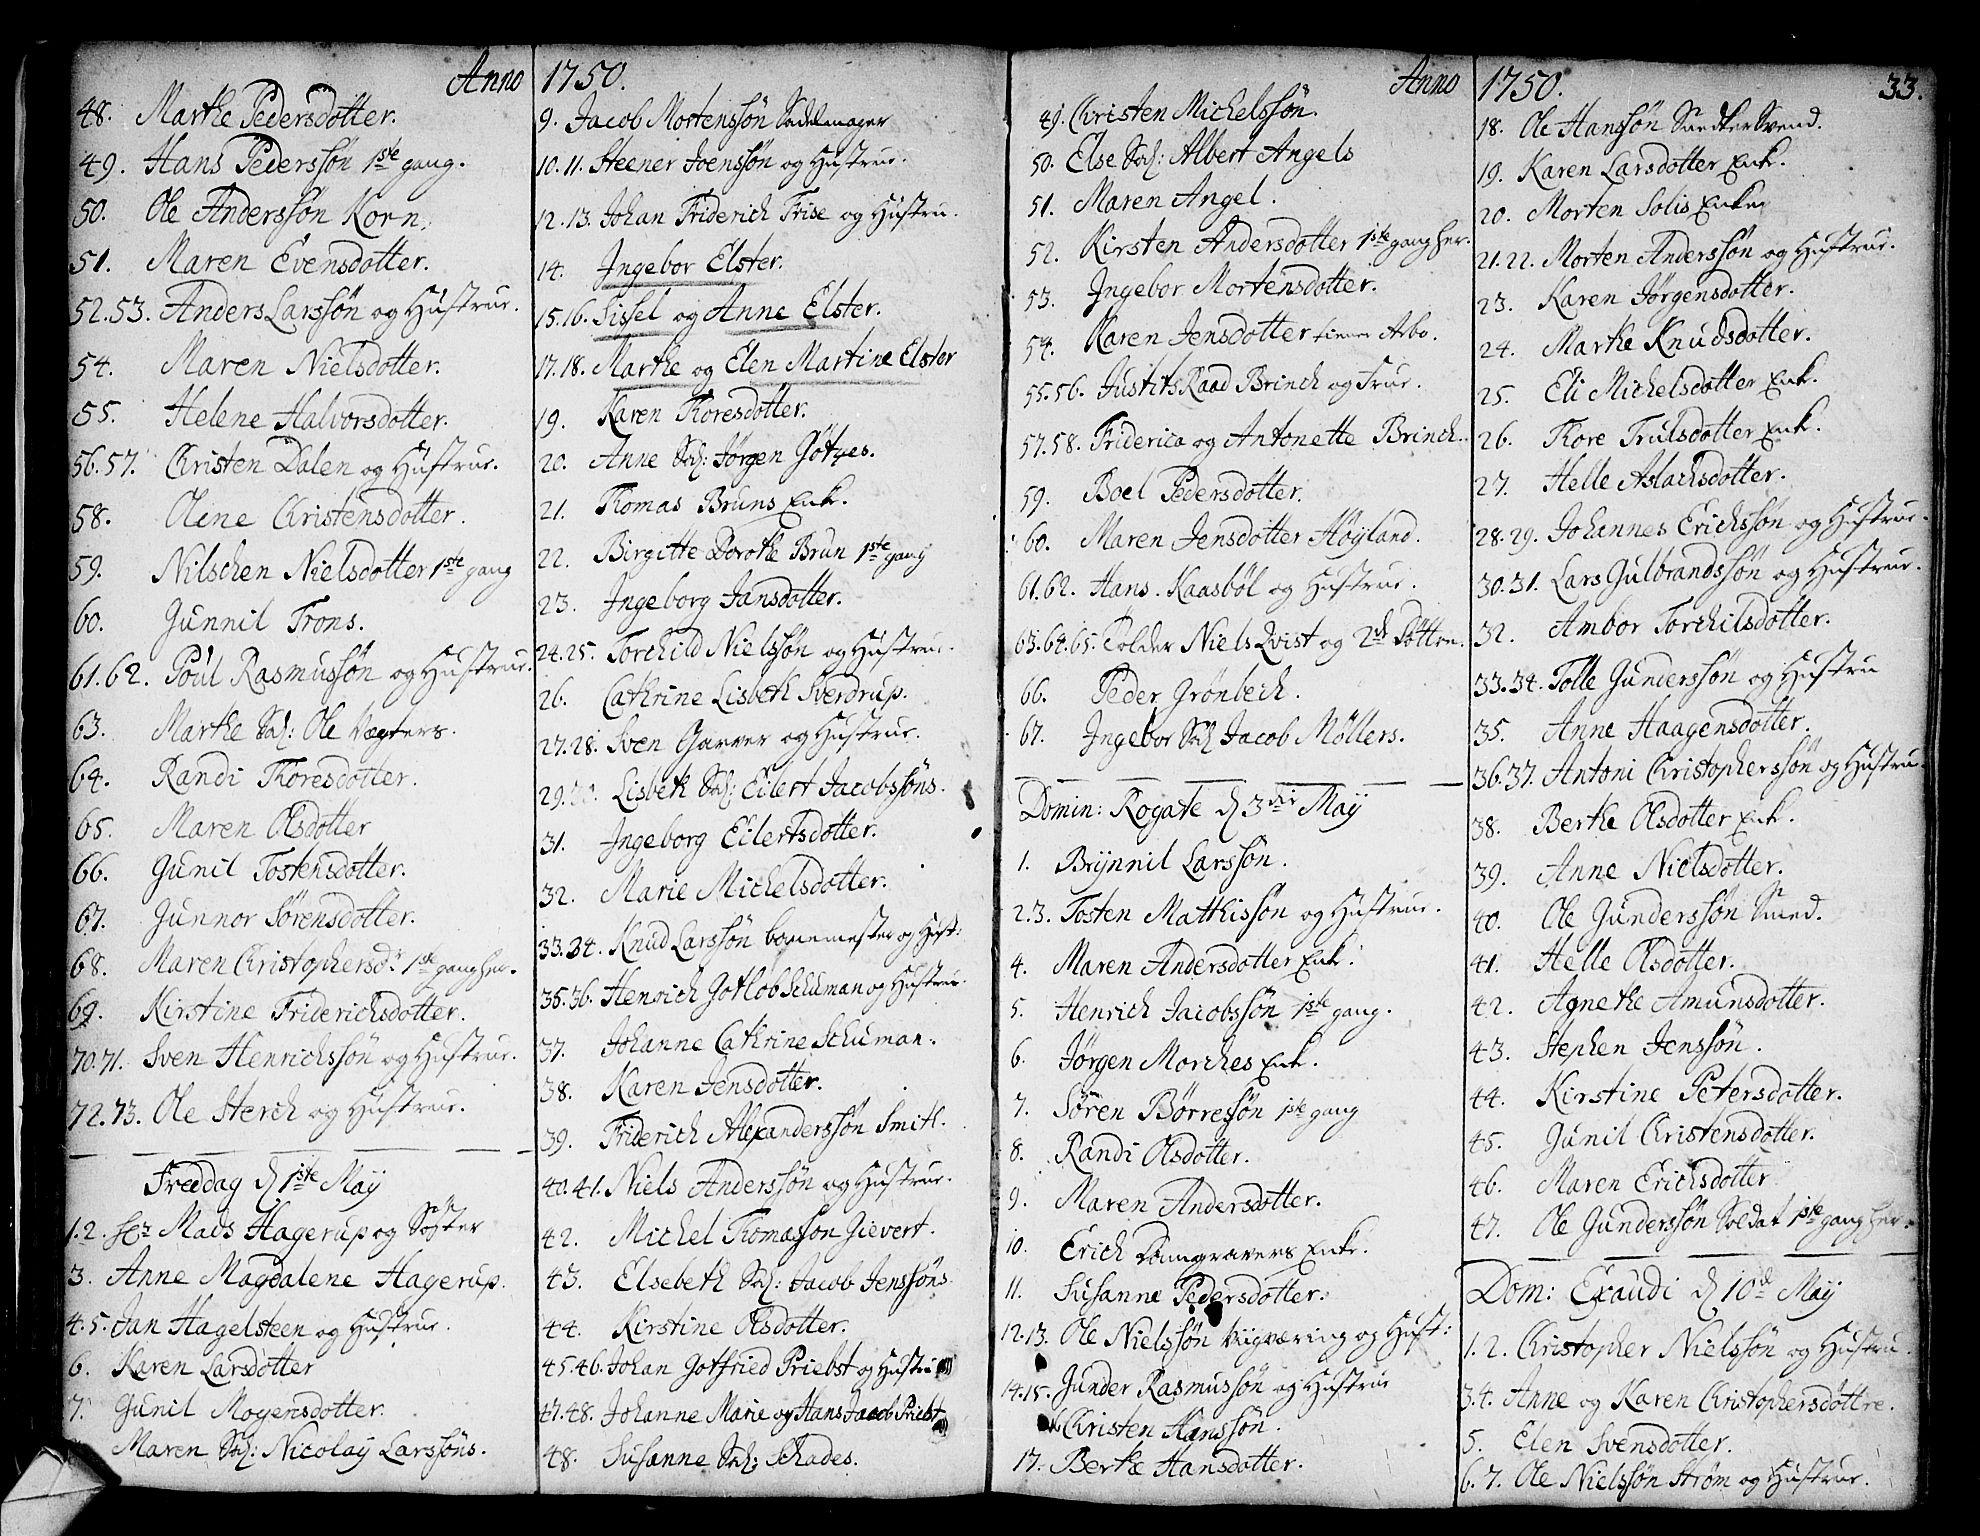 Anno 1750.
48. Marthe Pedersdotter.
49. Hans Pederssøn 1ste gang.
50. Ole Anderssøn Korn.
51. Maren Evensdotter.
52.53. Anders Larssøn og Hustrue.
54. Maren Nielsdotter.
55. Helene Halvorsdotter.
56.57. Christen Dalen og Hustrue.
58. Olene Christensdotter.
59. Nilschen Nielsdotter 1ste gang
60. Gunnil Trons.
61.62. Poul Rasmussøn og Hustrue.
63. Marthe Sal: Ole Vægters.
64. Randi Thoresdotter.
65. Maren Olsdotter
66. Gunil Tostensdotter.
67. Gunnor Sørensdotter.
68. Maren Christophersdr 1ste gang her.
69. Kirstine Friderichsdotter.
70.71. Sven Henrichssøn og Hustrue.
72.73. Ole Sterch og Hustrue.
Freddag d 1ste Maÿ
1.2. Mads Hagerup og Søster
3. Anne Magdalene Hagerup.
4.5. Jan Hagelsteen og Hustrue.
6. Karen Larsdotter
7. Gunil Mogensdotter.
Maren Sal: Nicolaÿ Larssøns.
9. Jacob Mortenssøn Sadelmager
10.11. Steener Joenssøn og Hustrue.
12.13. Johan Friderich Frise og Hustru.
14. Ingebor Elster.
15.16. Sissel og Anne Elster.
17.18. Marthe og Elen Martine Elster
19. Karen Thoresdotter.
20. Anne Sal: Jørgen Götzes.
21. Thomas Bruns Enke.
22. Birgitte Dorothe Brun 1ste gang
23. Ingeborg Jansdotter.
24.25. Torchild Nielssøn og Hustrue.
26. Cathrine Lisbeth Sverdrup.
27.28. Sven Garver og Hustrue.
29. Lisbeth Sal: Eilert Jacobssøns.
31. Ingeborg Eilertsdotter.
32. Marie Michelsdotter.
33.34. Knud Larssøn bommester og Hust:
35.36. Henrich Gotlob Schuman og Hustrue.
37. Johanne Cathrine Schuman.
38. Karen Jensdotter.
39. Friderich Alexanderssøn Smitt.
40.41. Niels Anderssøn og Hustrue.
42. Michel Thomassøn Gievert.
43. Elsebeth Sal: Jacob Jenssøns
44. Kirstine Olsdotter.
45.46. Johan Gotfried Priebst og Hustrue
47.48. Johanne Marie og Hans Jacob Priebst
48. Susanne Sal: Schades.
Anno 1750. 33.
49. Christen Michelssøn.
50. Else Sal: Albert Angels
51. Maren Angel.
52. Kirsten Andersdotter 1ste gang her.
53. Ingebor Mortensdotter.
54. Karen Jensdotter tiener Arbo.
55.56. Justits Raad Brinch og Frue.
57.58. Friderica og Antonette Brinch.
59. Boel Pedersdotter.
60. Maren Jensdotter Høyland.
61.62. Hans Kaasbøl og Hustrue.
63.64.65. Tolder Niels Qvist og 2de Døttre.
66. Peder Grønbech.
67. Ingebor Sal Jacob Møllers.
Domin: Rogate d 3die Maÿ
1. Brÿnnil Larssøn.
2.3. Tosten Matthissøn og Hustrue.
4. Maren Andersdotter Enk:
5. Henrich Jacobssøn 1ste gang.
6. Jørgen Morches Enk.
7. Søren Børresøn 1ste gang
8. Randi Olsdotter.
9. Maren Andersdotter.
10. Erich Damgravers Enke.
11. Susanne Pedersdotter.
12.13. Ole Nielssøn Viigværing og Hust:
14.15. Gunder Rasmussøn og Hustrue
Christen Hanssøn.
17. Berthe Hansdotter.
18. Ole Hanssøn Snedker Svend.
19. Karen Larsdotter Enk.
20. Morten Solis Enke
21.22. Morten Anderssøn og Hustrue.
23. Karen Jørgensdotter.
24. Marthe Knudsdotter.
25. Eli Michelsdotter Enk.
26. Thore Trulsdotter Enk.
27. Helle Aslachsdotter.
28.29. Johannes Erichssøn og Hustrue.
30.31. Lars Gulbrandssøn og Hustrue.
32. Ambor Torchilsdotter.
33.34. Tolle Gunderssøn og Hustru
35. Anne Haagensdotter.
36.37. Antoni Christopherssøn og Hustru.
38. Berthe Olsdotter Enk.
39. Anne Nielsdotter.
40. Ole Gunderssøn Smed.
41. Helle Olsdotter.
42. Agnethe Amunsdotter.
43. Stephen Jenssøn.
44. Kirstine Petersdotter.
45. Gunil Christensdotter.
46. Maren Erichsdotter
47. Ole Gunderssøn Soldat 1ste gang her.
Dom: Exaudi d 10de Maÿ
1.2. Christopher Nielssøn og Hustru.
3.4. Anne og Karen Christophersdottre.
5. Elen Svensdotter.
6.7. Ole Nielssøn Strøm og Hustrue.